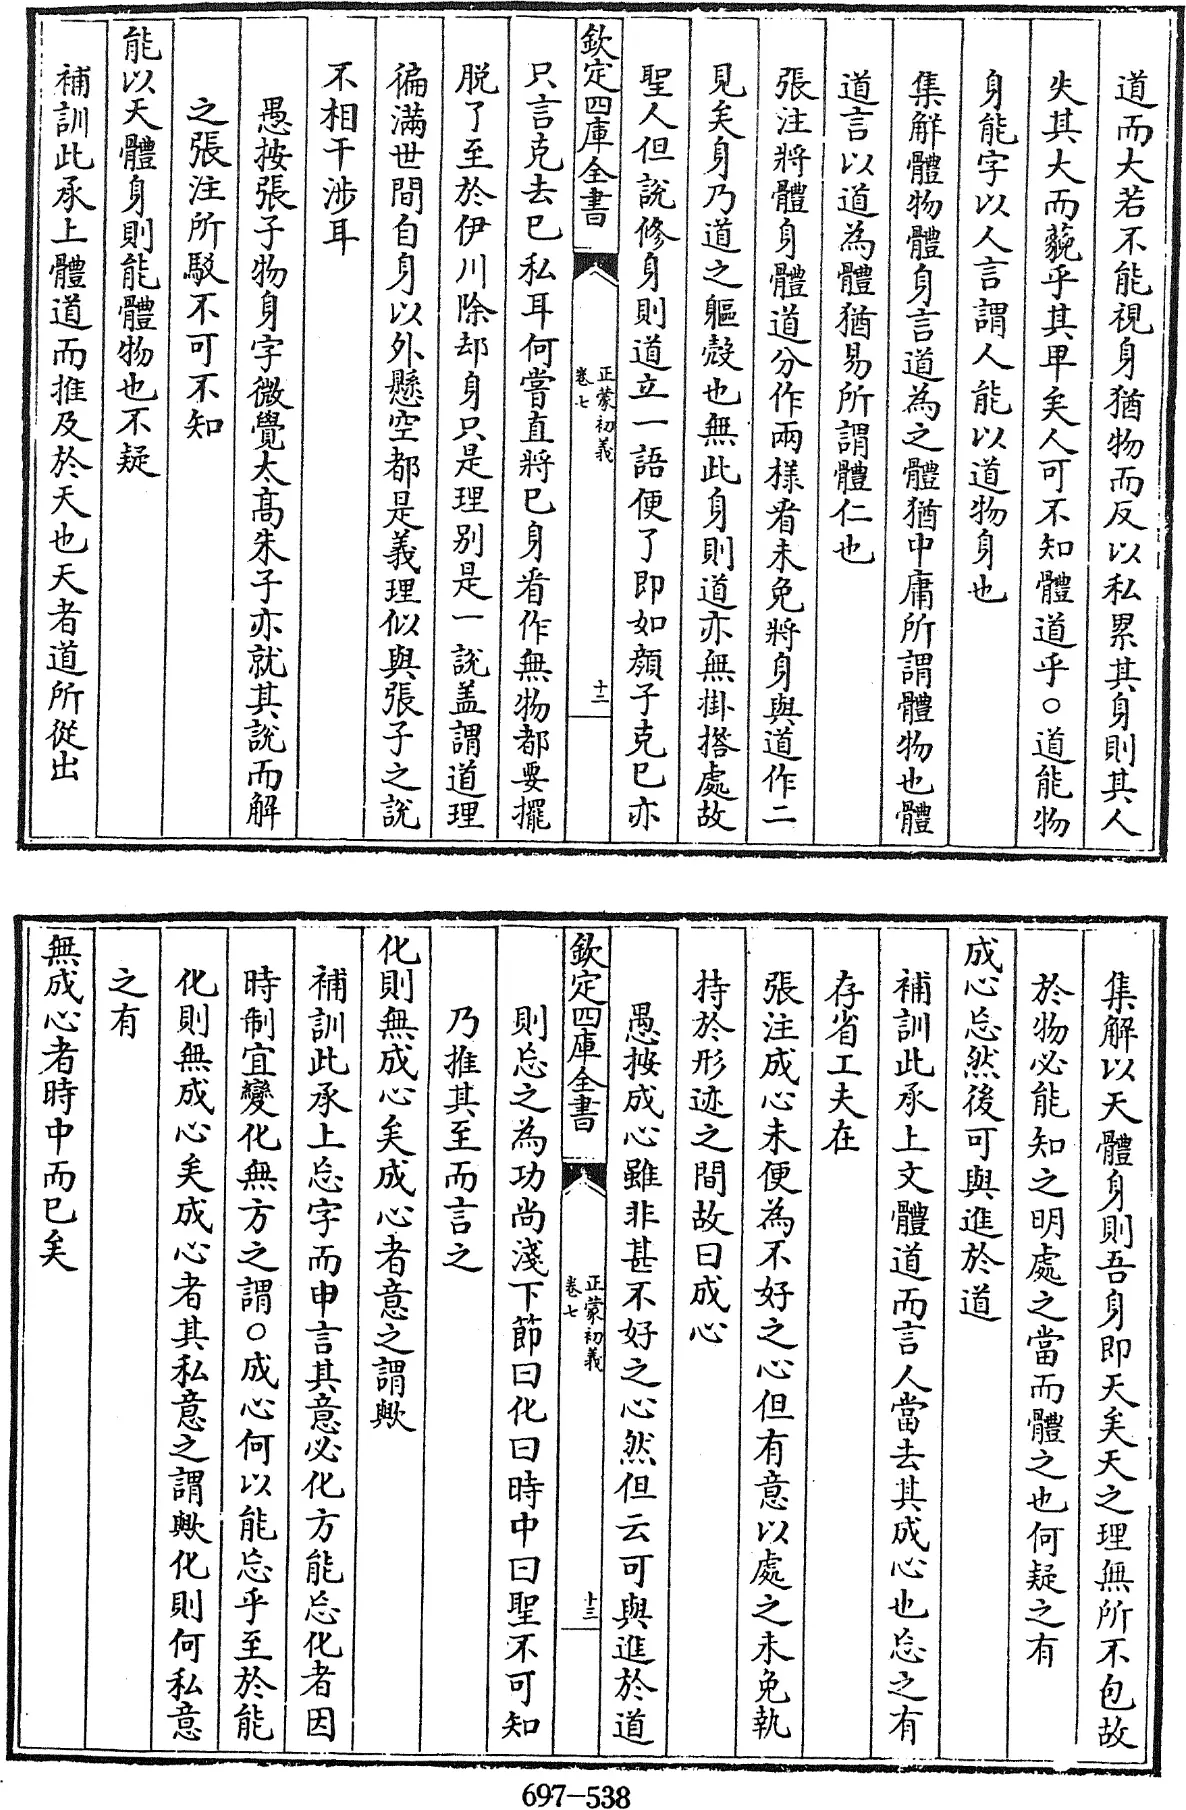 道而大若不能視身猶物而反以私累其身則其人
失其大而藐乎其卑矣人可不知體道乎○道能物
身能字以人言謂人能以道物身也
集解體物體身言道為之體猶中庸所謂體物也體
道言以道為體猶易所謂體仁也
張注將體身體道分作兩様看未免將身與道作二
見矣身乃道之軀殼也無此身則道亦無掛搭處故
聖人但說修身則道立一語便了即如顔子克巳亦
欽定四庫全書
正蒙初義
卷七
十二
只言克去巳私耳何嘗直將巳身看作無物都要擺
脱了至於伊川除却身只是理别是一說盖謂道理
徧滿世間自身以外懸空都是義理似與張子之說
不相干涉耳
愚按張子物身字微覺太髙朱子亦就其說而解
之張注所駁不可不知
能以天體身則能體物也不疑
補訓此承上體道而推及於天也天者道所從出
集解以天體身則吾身即天矣天之理無所不包故
於物必能知之明處之當而體之也何疑之有
成心忘然後可與進於道
補訓此承上文體道而言人當去其成心也忘之有
存省工夫在
張注成心未便為不好之心但有意以處之未免執
持於形迹之間故曰成心
愚按成心雖非甚不好之心然但云可與進於道
欽定四庫全書
正蒙初義
卷七
十三
則忘之為功尚淺下節曰化曰時中曰聖不可知
乃推其至而言之
化則無成心矣成心者意之謂歟
補訓此承上忘字而申言其意必化方能忘化者因
時制宜變化無方之謂○成心何以能忘乎至於能
化則無成心矣成心者其私意之謂歟化則何私意
之有
無成心者時中而巳矣
697-538